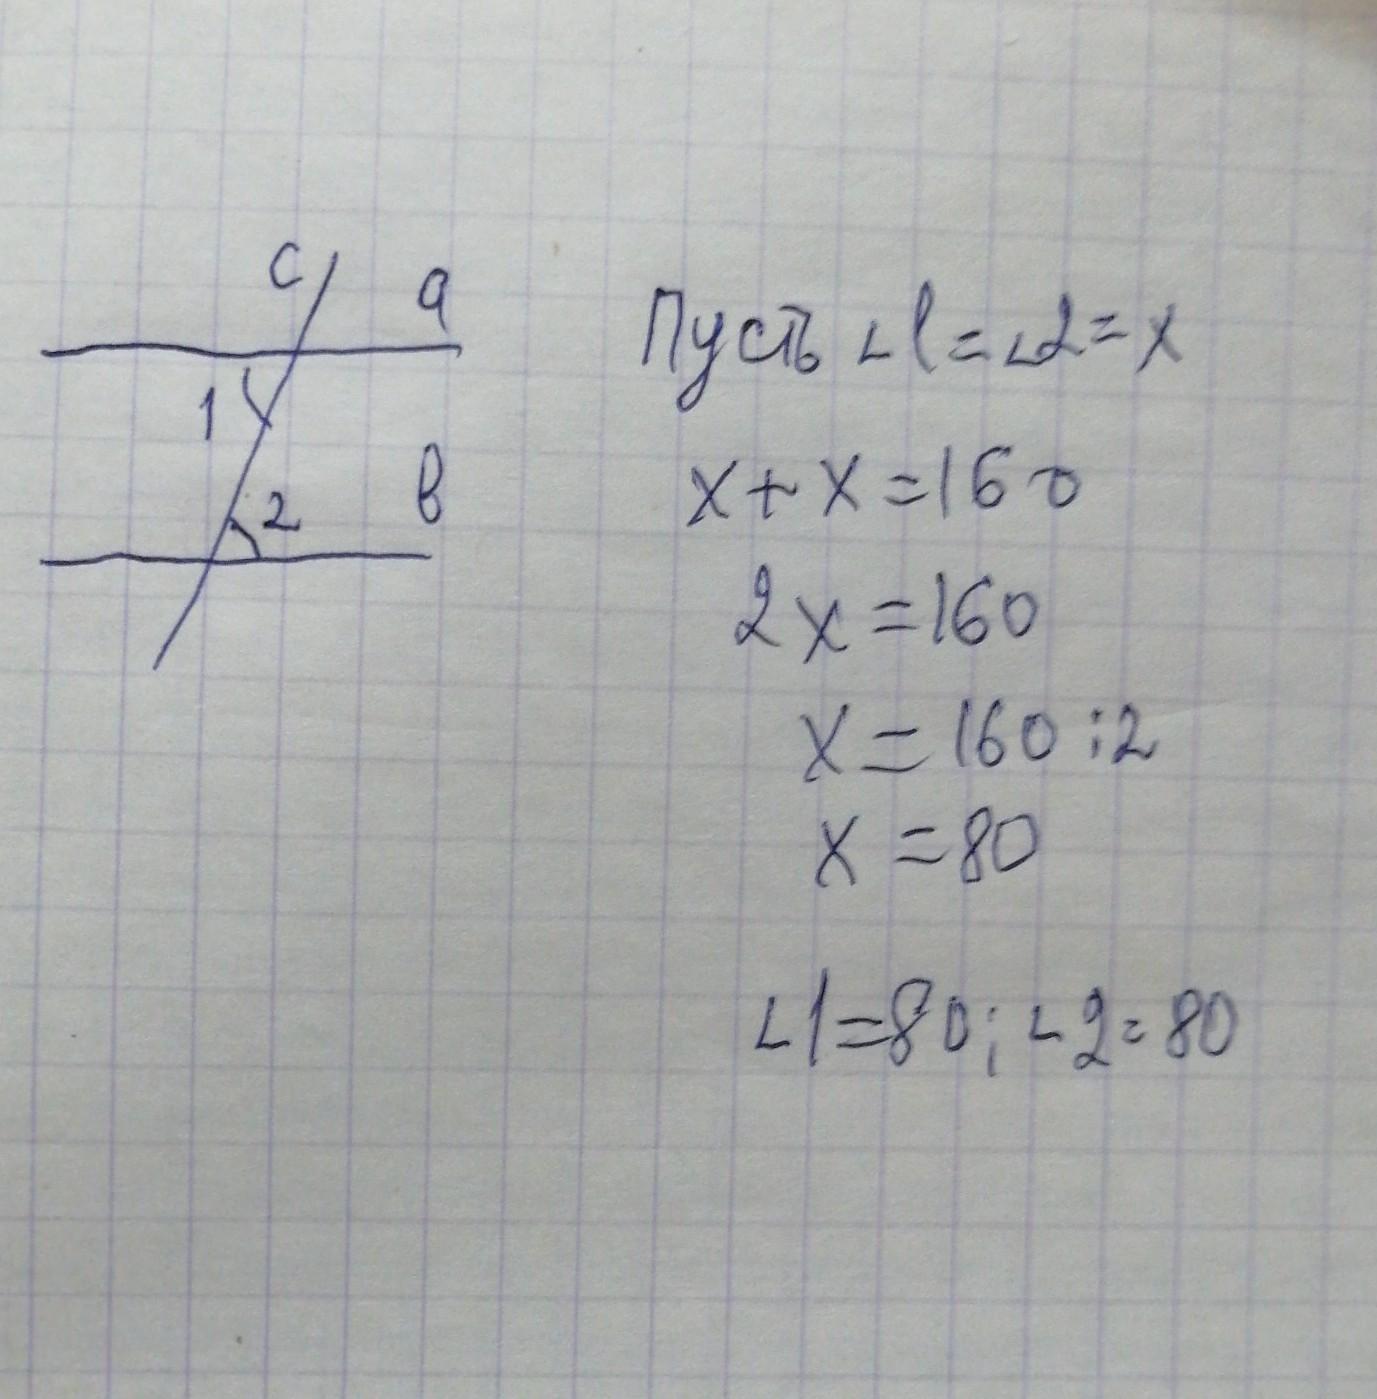 c a
1
2 b
Пусть ∠1=∠2=x
x+x=160
2x=160
x=160:2
x=80
∠1=80; ∠2=80